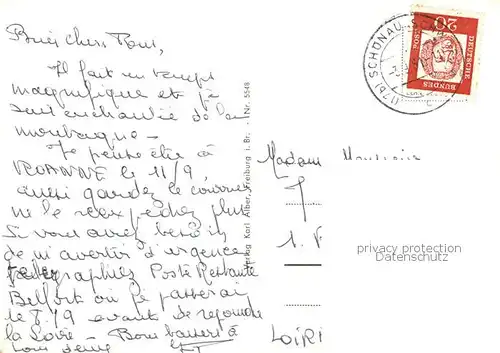 Il fait un temps
magnifique et je
suis enchantée de la
montagne -
Je pense être à
ROANNE le 11/9,
aussi gardez le courrier
ne le plus
Si vous avez besoin
de m'avertir d'urgence
télégraphiez Poste Restante
Belfort où je passerai
le 8/9 avant de rejoindre
la Loire - Bons baisers à
Verlag Karl Alber, Freiburg i. Br. - Nr. 5548
(17b) SCHÖNAU
20
DEUTSCHE
BUNDESPOST
Madame Monsieur
1.
privacy protection
Datenschutz
LOIR